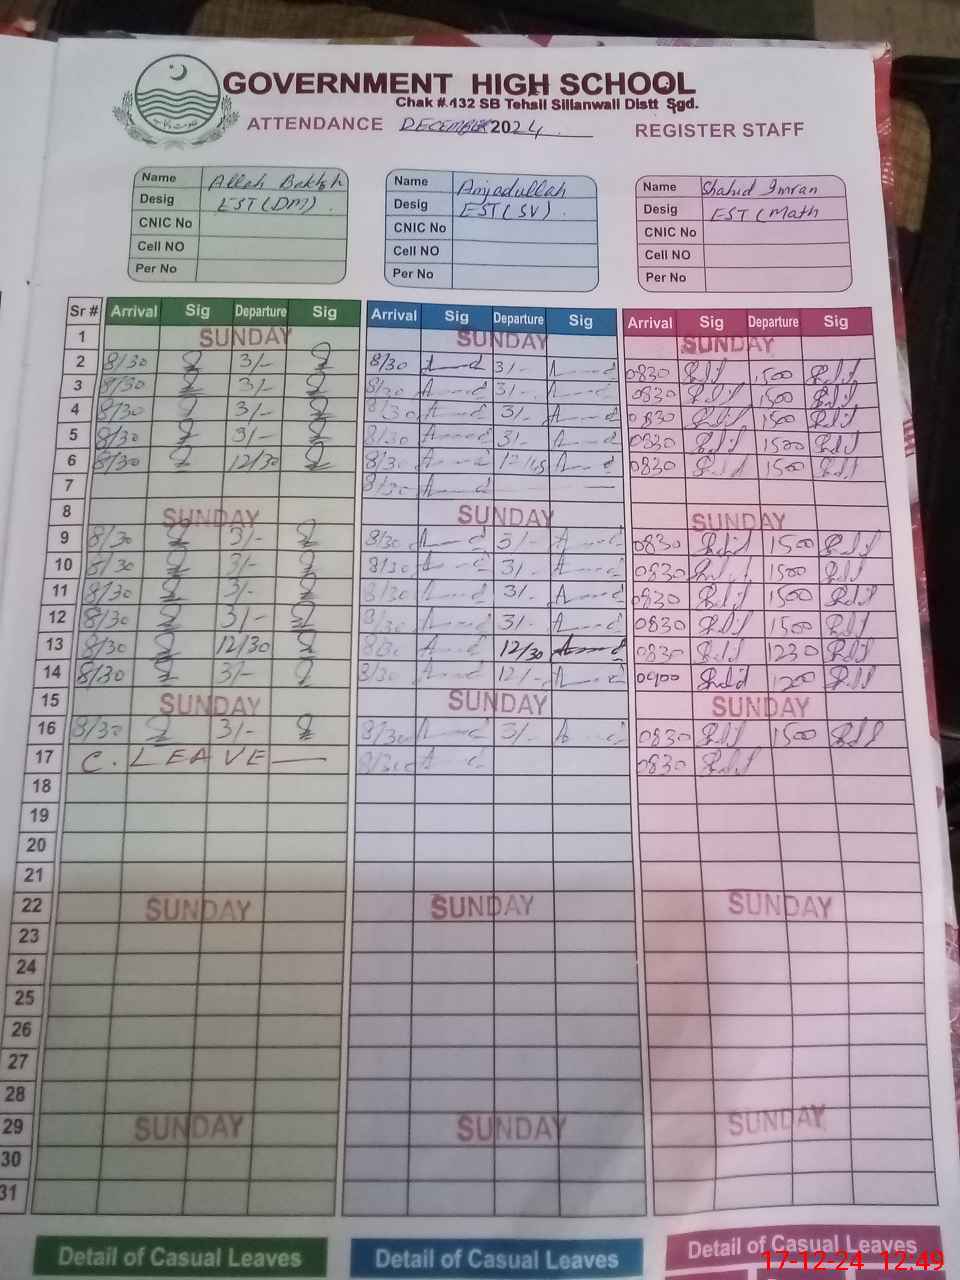 GOVERNMENT HIGH SCHOOL
Chak #.132 SB Tehsil Sillanwali Distt Sgd.
ATTENDANCE DECEMBER 2024 REGISTER STAFF
Name Allah Bakhsh
Desig EST(DM).
CNIC No
Cell NO
Per No
Name Amjadullah
Desig EST(SV).
CNIC No
Cell NO
Per No
Name Shahid Imran
Desig EST(Math
CNIC No
Cell NO
Per No
Sr # Arrival Sig Departure Sig Arrival Sig Departure Sig Arrival Sig Departure Sig
1 SUNDAY SUNDAY SUNDAY
2 8/30 3/- 8/30 3/- 0830 1500
3 8/30 3/- 8/30 3/- 0830 1500
4 8/30 3/- 8/30 3/- 0830 1500
5 8/30 3/- 8/30 3/- 0830 1500
6 8/30 12/30 8/30 12/45 0830 1500
7 8/30
8 SUNDAY SUNDAY SUNDAY
9 8/30 3/- 8/30 3/- 0830 1500
10 8/30 3/- 8/30 3/- 0830 1500
11 8/30 3/- 8/30 3/- 0830 1500
12 8/30 3/- 8/30 3/- 0830 1500
13 8/30 12/30 8/30 12/30 0830 1230
14 8/30 3/- 8/30 12/- 0900 1200
15 SUNDAY SUNDAY SUNDAY
16 8/30 3/- 8/30 3/- 0830 1500
17 C. LEAVE 8/30 0830
18
19
20
21
22 SUNDAY SUNDAY SUNDAY
23
24
25
26
27
28
29 SUNDAY SUNDAY SUNDAY
30
31
Detail of Casual Leaves Detail of Casual Leaves Detail of Casual Leaves
17-12-24 12:49